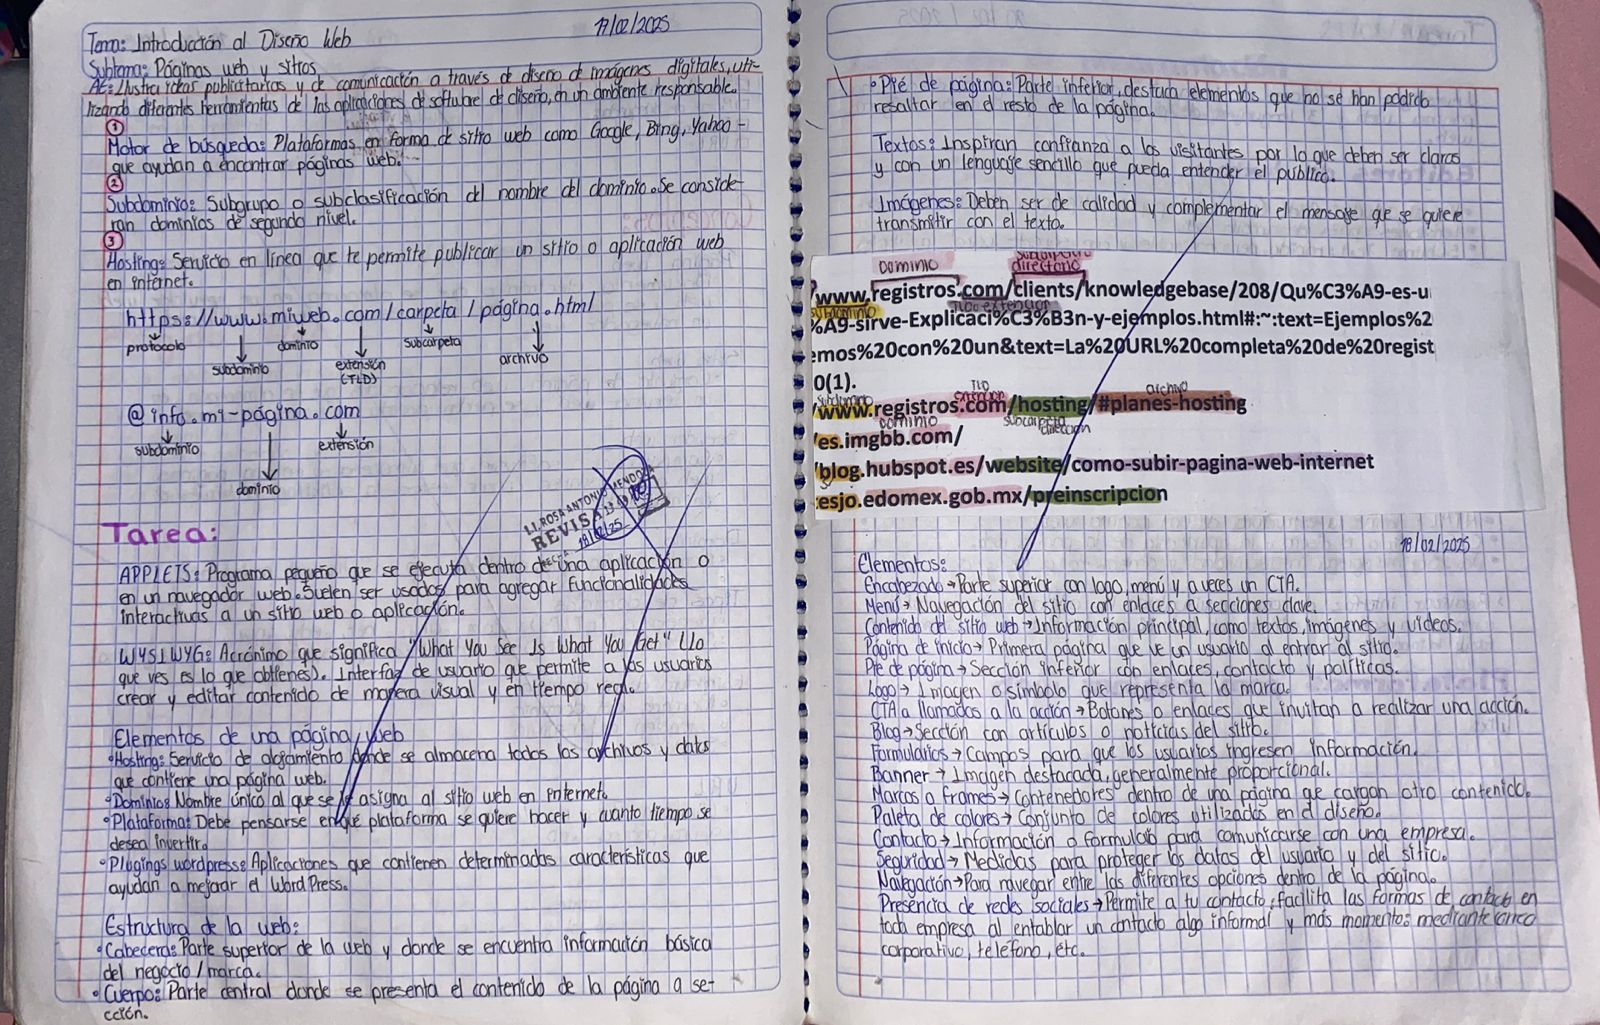 17/02/2025
Tema: Introducción al Diseño Web
Subtema: Páginas web y sitios
AE: Ilustra ideas publicitarias y de comunicación a través de diseño de imágenes digitales, uti-
lizando diferentes herramientas de las aplicaciones de software de diseño, en un ambiente responsable.
1
Motor de búsqueda: Plataformas en forma de sitio web como Google, Bing, Yahoo -
que ayudan a encontrar páginas web.
2
Subdominio: Subgrupo o subclasificación del nombre del dominio. Se conside-
ran dominios de segundo nivel.
3
Hosting: Servicio en línea que te permite publicar un sitio o aplicación web
en internet.
https://www.miweb.com/carpeta/página.html
protocolo
subdominio
dominio
extensión
(TLD)
subcarpeta
archivo
@info.mi-página.com
subdominio
dominio
extensión
L.I. ROSA ANTONIO MENDOZA
REVISA
18/02/25
Tarea:
APPLETS: Programa pequeño que se ejecuta dentro de una aplicación o
en un navegador web. Suelen ser usados para agregar funcionalidades
interactivas a un sitio web o aplicación.
WYSIWYG: Acrónimo que significa "What You See Is What You Get" (Lo
que ves es lo que obtienes). Interfaz de usuario que permite a los usuarios
crear y editar contenido de manera visual y en tiempo real.
Elementos de una página web
°Hosting: Servicio de alojamiento donde se almacena todos los archivos y datos
que contiene una página web.
°Dominio: Nombre único al que se le asigna al sitio web en internet.
°Plataforma: Debe pensarse en qué plataforma se quiere hacer y cuanto tiempo se
desea invertir.
°Plugings wordpress: Aplicaciones que contienen determinadas características que
ayudan a mejorar el WordPress.
Estructura de la web:
°Cabecera: Parte superior de la web y donde se encuentra información básica
del negocio/marca.
°Cuerpo: Parte central donde se presenta el contenido de la página a se-
cción.
°Pié de página: Parte inferior, destaca elementos que no se han podido
resaltar en el resto de la página.
Textos: Inspiran confianza a los visitantes por lo que deben ser claros
y con un lenguaje sencillo que pueda entender el público.
Imágenes: Deben ser de calidad y complementar el mensaje que se quiere
transmitir con el texto.
dominio
subcarpeta
directorio
www.registros.com/clients/knowledgebase/208/Qu%C3%A9-es-u
subdominio
TLD o extension
%A9-sirve-Explicaci%C3%B3n-y-ejemplos.html#:~:text=Ejemplos%2
emos%20con%20un&text=La%20URL%20completa%20de%20regist
0(1).
subdominio
TLD
extension
archivo
/www.registros.com/hosting/#planes-hosting
dominio
subcarpeta
direccion
/es.imgbb.com/
/blog.hubspot.es/website/como-subir-pagina-web-internet
esjo.edomex.gob.mx/preinscripcion
18/02/2025
Elementos:
Encabezado → Parte superior con logo, menú y a veces un CTA.
Menú → Navegación del sitio con enlaces a secciones clave.
Contenido del sitio web → Información principal, como textos, imágenes y videos.
Página de inicio → Primera página que ve un usuario al entrar al sitio.
Pie de página → Sección inferior con enlaces, contacto y políticas.
Logo → Imagen o símbolo que representa la marca.
CTA o llamados a la acción → Botones o enlaces que invitan a realizar una acción.
Blog → Sección con artículos o noticias del sitio.
Formularios → Campos para que los usuarios ingresen información.
Banner → Imagen destacada, generalmente proporcional.
Marcos o frames → Contenedores dentro de una página que cargan otro contenido.
Paleta de colores → Conjunto de colores utilizados en el diseño.
Contacto → Información o formulario para comunicarse con una empresa.
Seguridad → Medidas para proteger los datos del usuario y del sitio.
Navegación → Para navegar entre las diferentes opciones dentro de la página.
Presencia de redes sociales → Permite a tu contacto, facilita las formas de contacto en
toda empresa al entablar un contacto algo informal y más momento: mediante correo
corporativo, teléfono, etc.